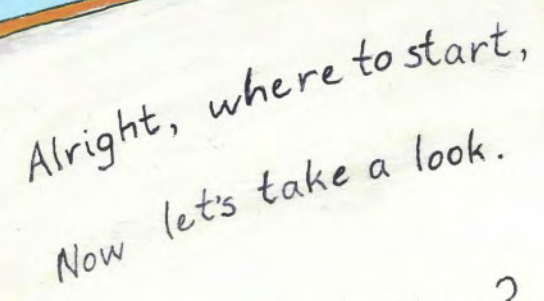 Alright, where to start,
Now let's take a look.
?